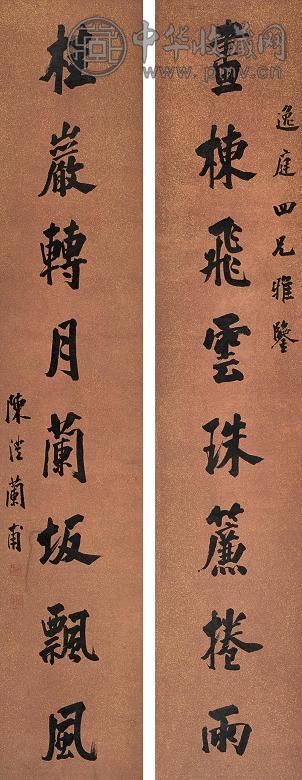 中华收藏网
逸庭四兄雅鑒
畫棟飛雲珠簾捲雨
桂巖轉月蘭坂飄風
陳澧蘭甫